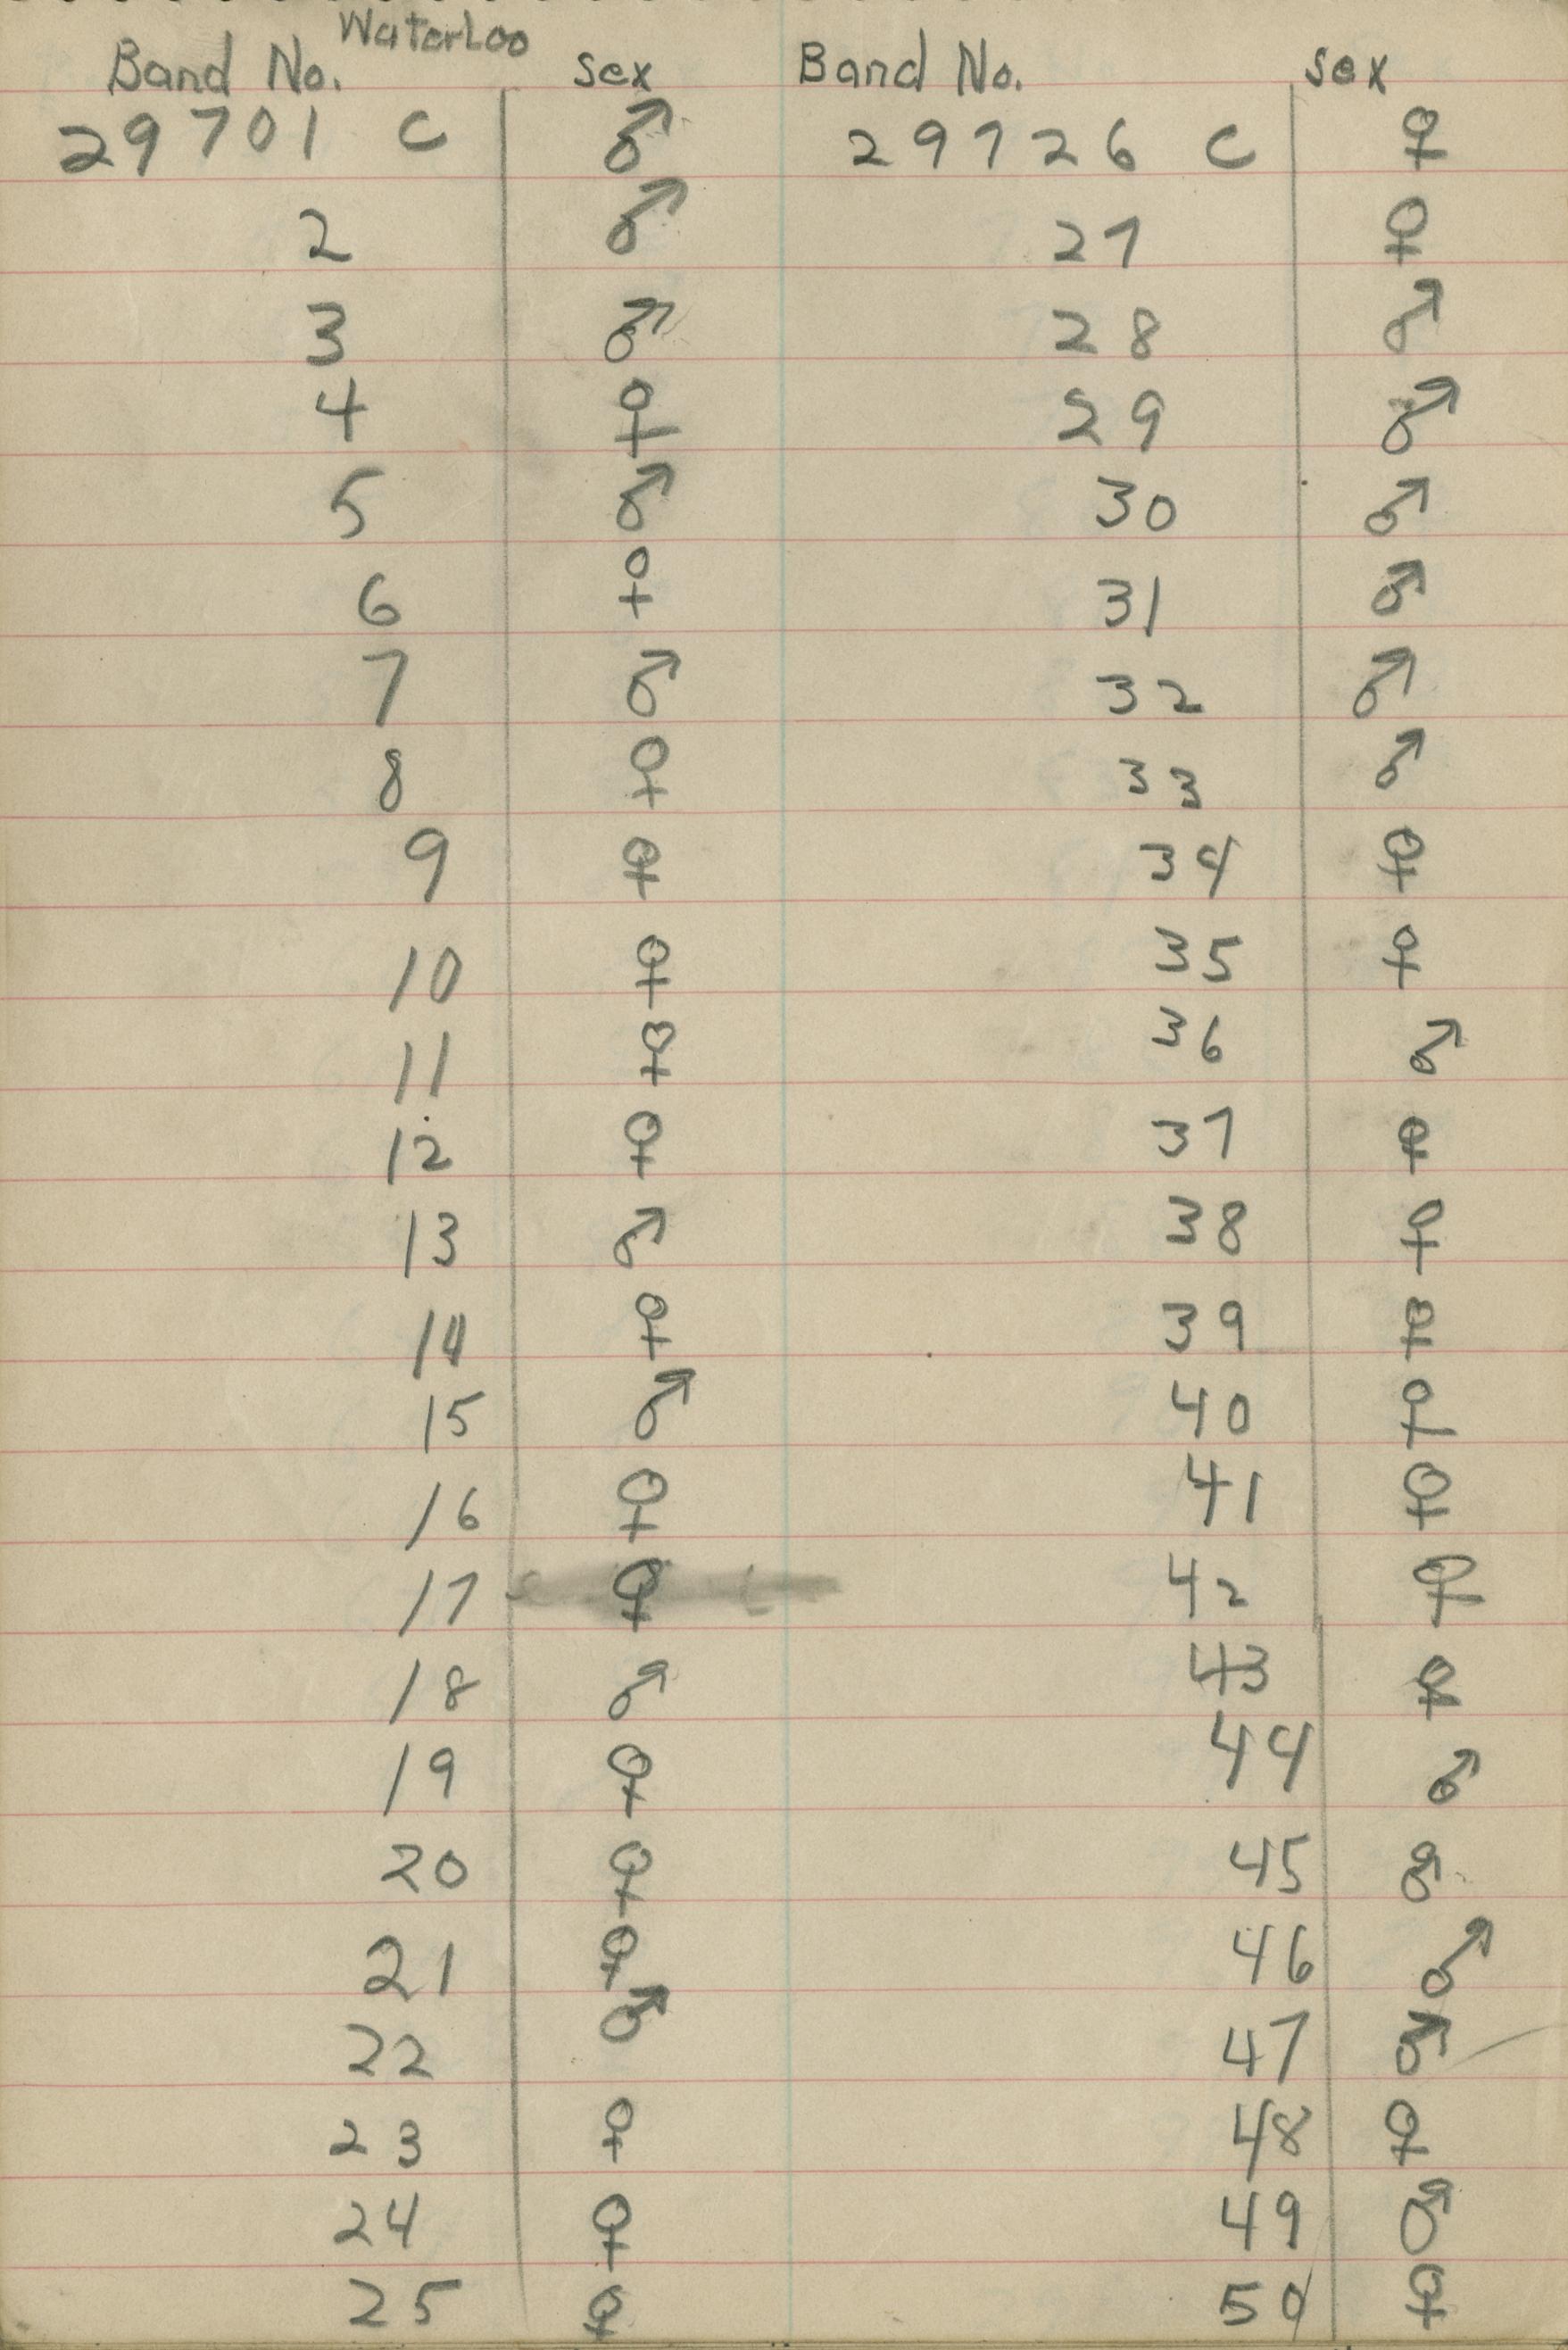 WaterLoo
Band No. Sex Band No. Sex
29701 C ♂ 29726 C ♀
2 ♂ 27 ♀
3 ♂ 28 ♂
4 ♀ 29 ♂
5 ♂ 30 ♂
6 ♀ 31 ♂
7 ♂ 32 ♂
8 ♀ 33 ♂
9 ♀ 34 ♀
10 ♀ 35 ♀
11 ♀ 36 ♂
12 ♀ 37 ♀
13 ♂ 38 ♀
14 ♀ 39 ♀
15 ♂ 40 ♀
16 ♀ 41 ♀
17 ♀ 42 ♀
18 ♂ 43 ♀
19 ♀ 44 ♂
20 ♀ 45 ♂
21 ♀ 46 ♂
22 ♂ 47 ♂
23 ♀ 48 ♀
24 ♀ 49 ♂
25 ♀ 50 ♀